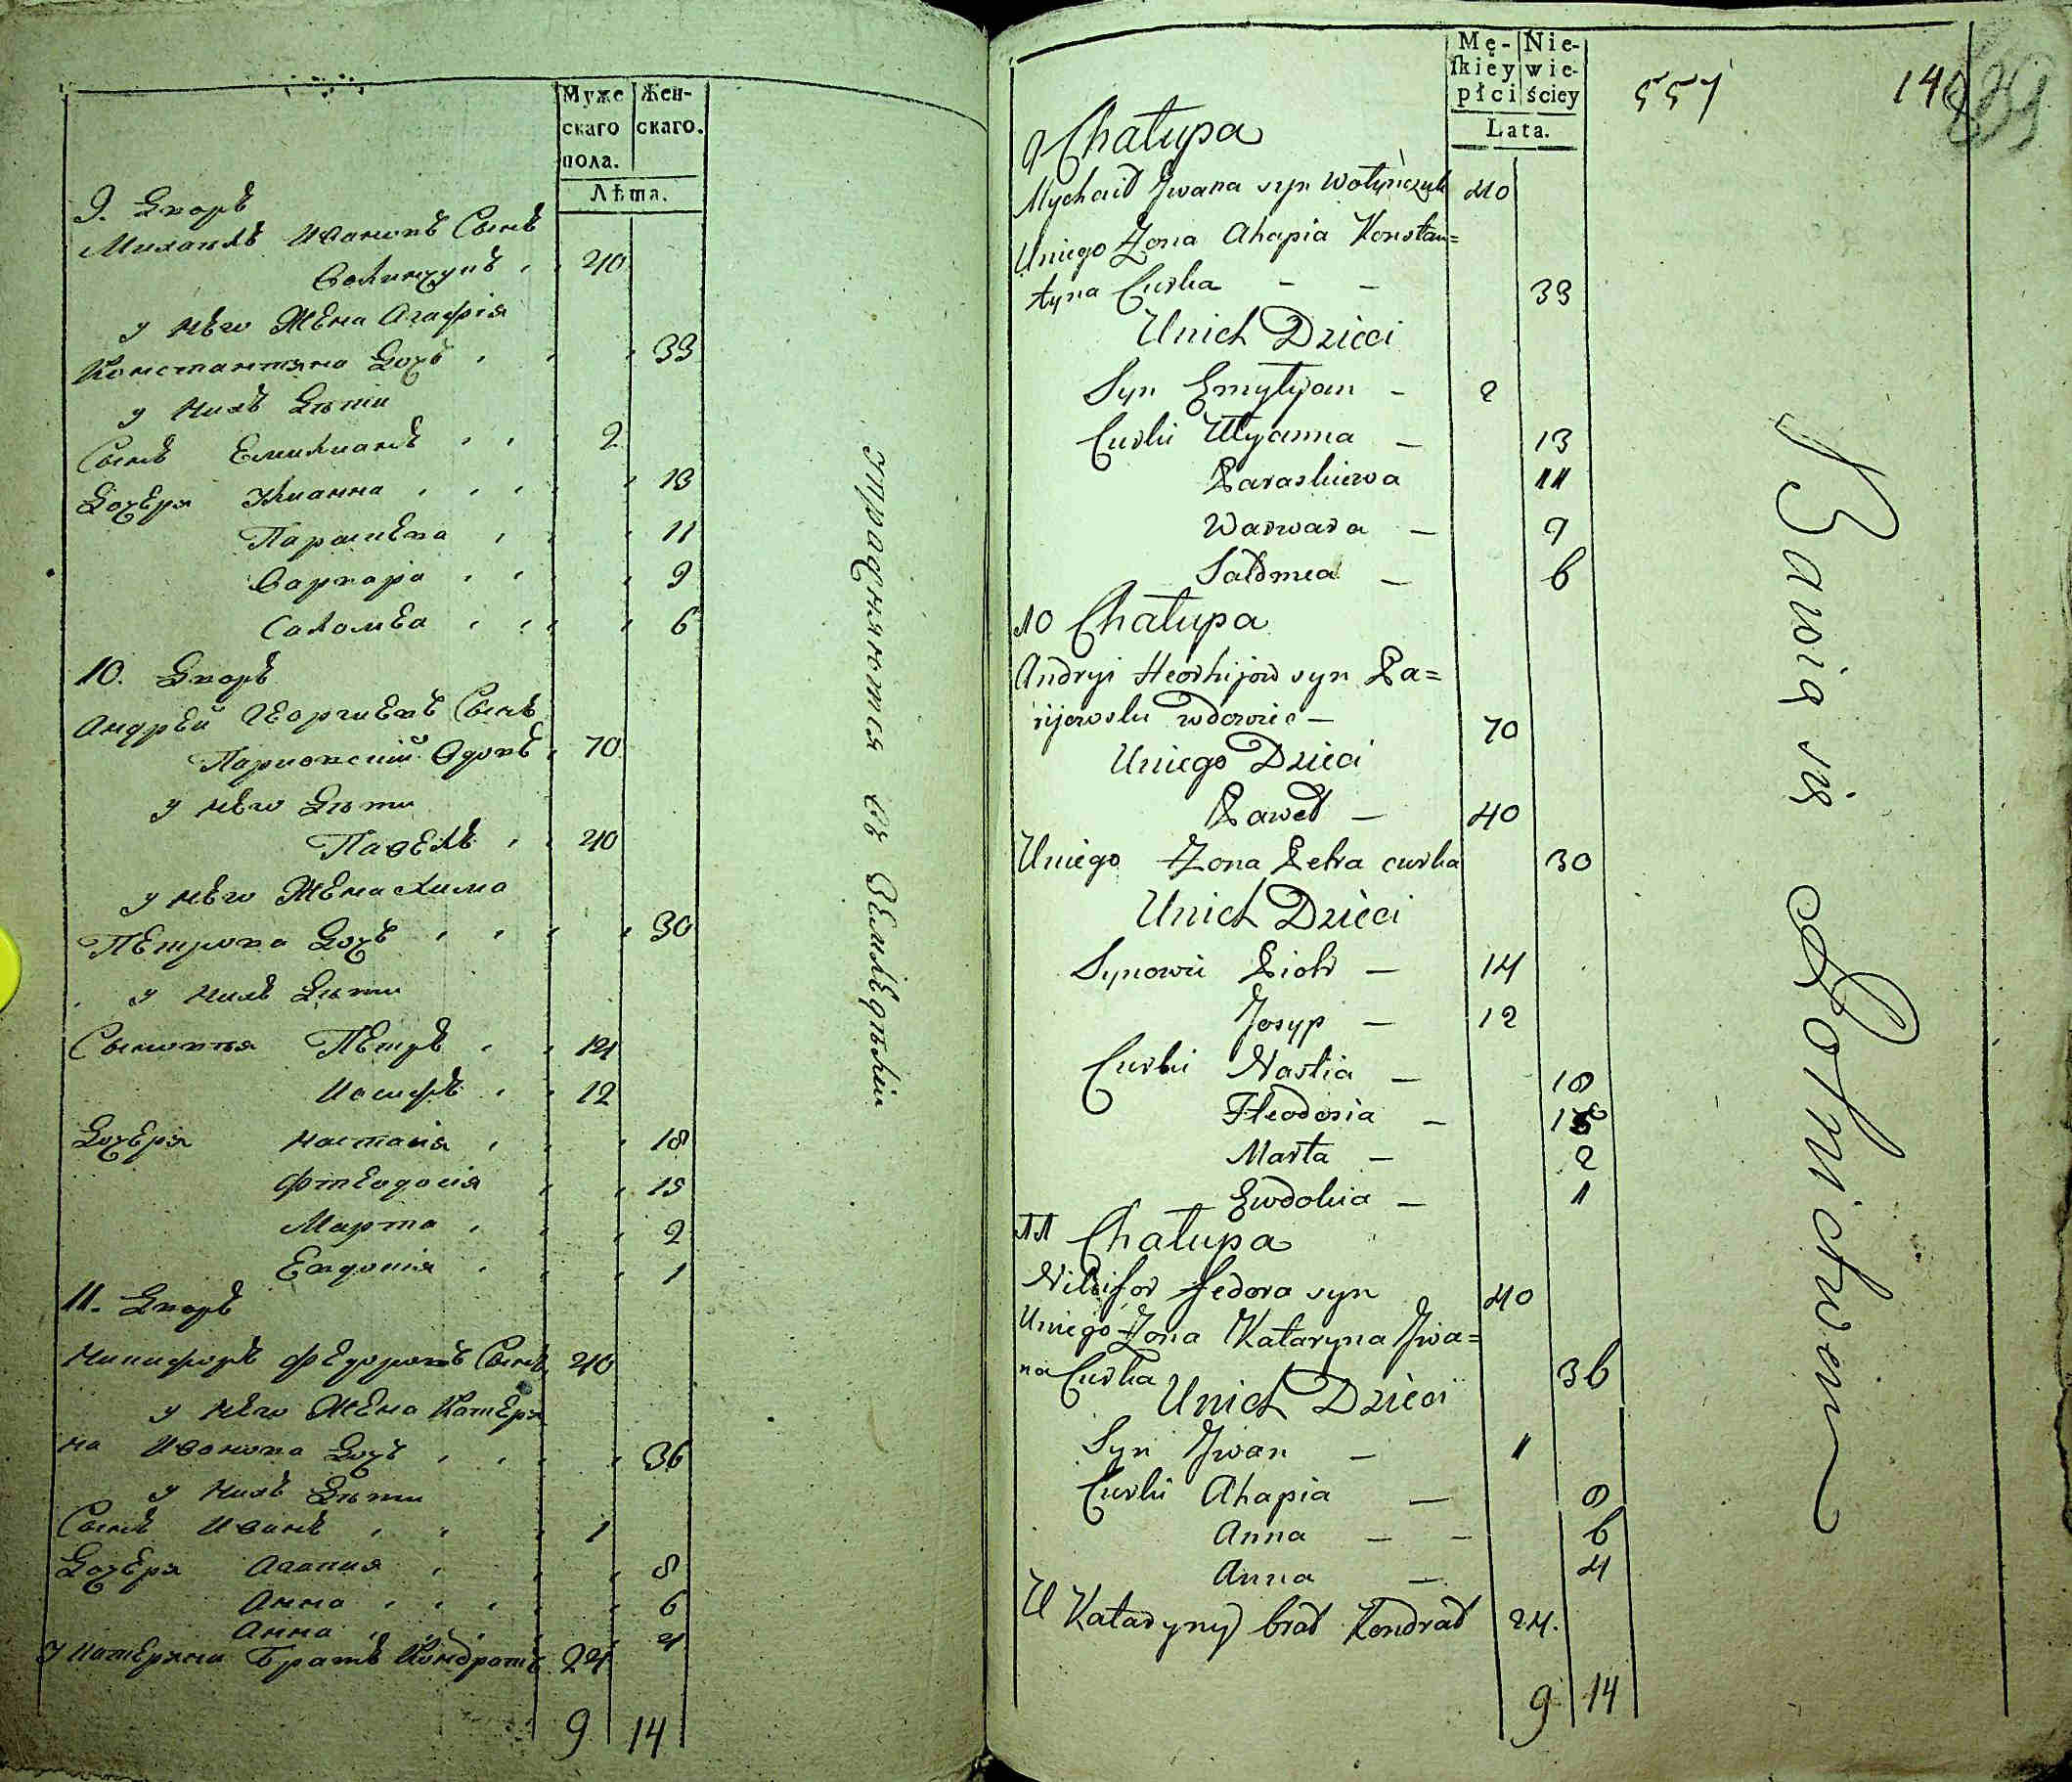 Муже
скаго
пола.
Жен-
скаго.
Лѣта.
9. Дворъ
Михаилъ Ивановъ Сынъ
Волинчукъ 40
у него Жена Агафія
Константина Дочъ 33
у нихъ Дѣти
Сынъ Емилианъ 2
Дочеря Улианна 13
Парашева 11
Варвара 9
Саломеа 6
10. Дворъ
Андрей Георгиевъ Сынъ
Париовский Вдовъ 70
у него Дѣти
Павелъ 40
у него Жена Хима
Петрова Дочъ 30
у нихъ Дѣти
Сыновья Петръ 14
Иосифъ 12
Дочеря Настасія 18
Фтеодосія 15
Марта 2
Евдокія 1
11. Дворъ
Никифоръ Федоровъ Сынъ 40
у него Жена Катери
на Иванова Дочъ 36
у нихъ Дѣти
Сынъ Иванъ 1
Дочеря Агапия 8
Анна 6
Анна 4
У Катерини Братъ Кондратъ 24
9 14
упражняются въ Земледѣліи
Mę-
skiey
płci
Nie-
wie-
ściey
Lata.
551
148
239
9 Chałupa
Mychaił Jwana syn Wołyńczuk 40
Uniego Żona Ahapia Konstan=
tyna Curka - - 33
Unich Dzieci
Syn Emyłyjan - 2
Curki Ulyanna - 13
Paraskiewa 11
Warwara - 9
Sałomea - 6
10 Chałupa
Andryi Heorhijow syn Pa=
rijowski wdowiec - 70
Uniego Dzieci
Paweł - 40
Uniego Żona Petra curka 30
Unich Dzieci
Synowie Piotr - 14
Josyp - 12
Curki Nastia - 18
Fteodosia - 15
Marta - 2
Ewdokia - 1
11 Chałupa
Nikifor fedora syn 40
Uniego Żona Kataryna Jwa=
na Curka 36
Unich Dzieci
Syn Jwan - 1
Curki Ahapia - 8
Anna - - 6
Anna - 4
U Kataryny brat Kondrat 24.
9 14
Bawią się Rolnictwem